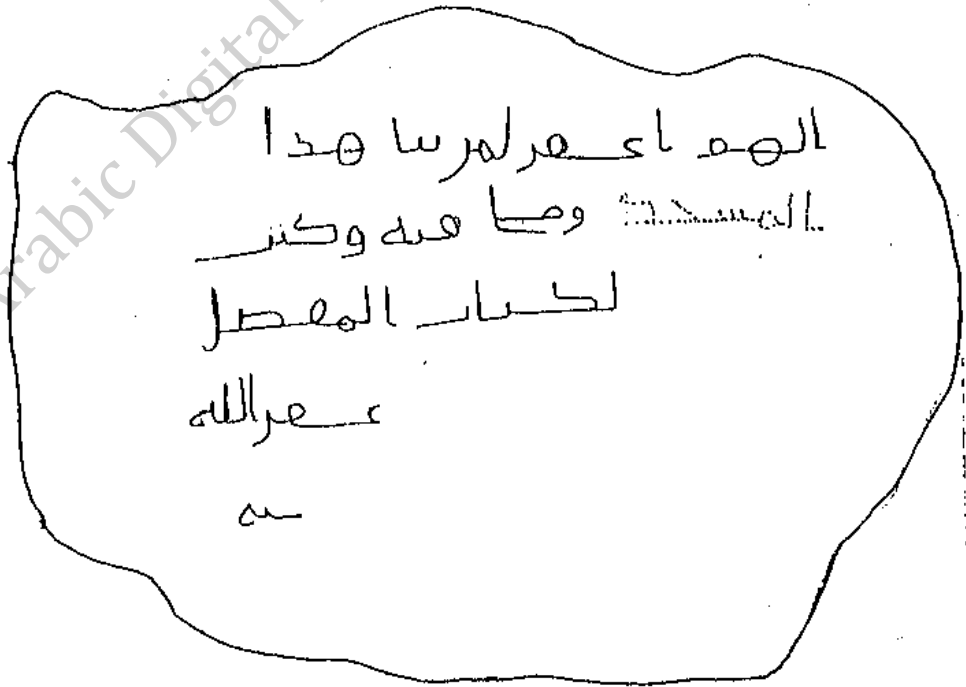 Arabic Digital
الهم اغفر لمن بنا هذا
المسجد وما فيه وكتب
المفضل
غفر الله